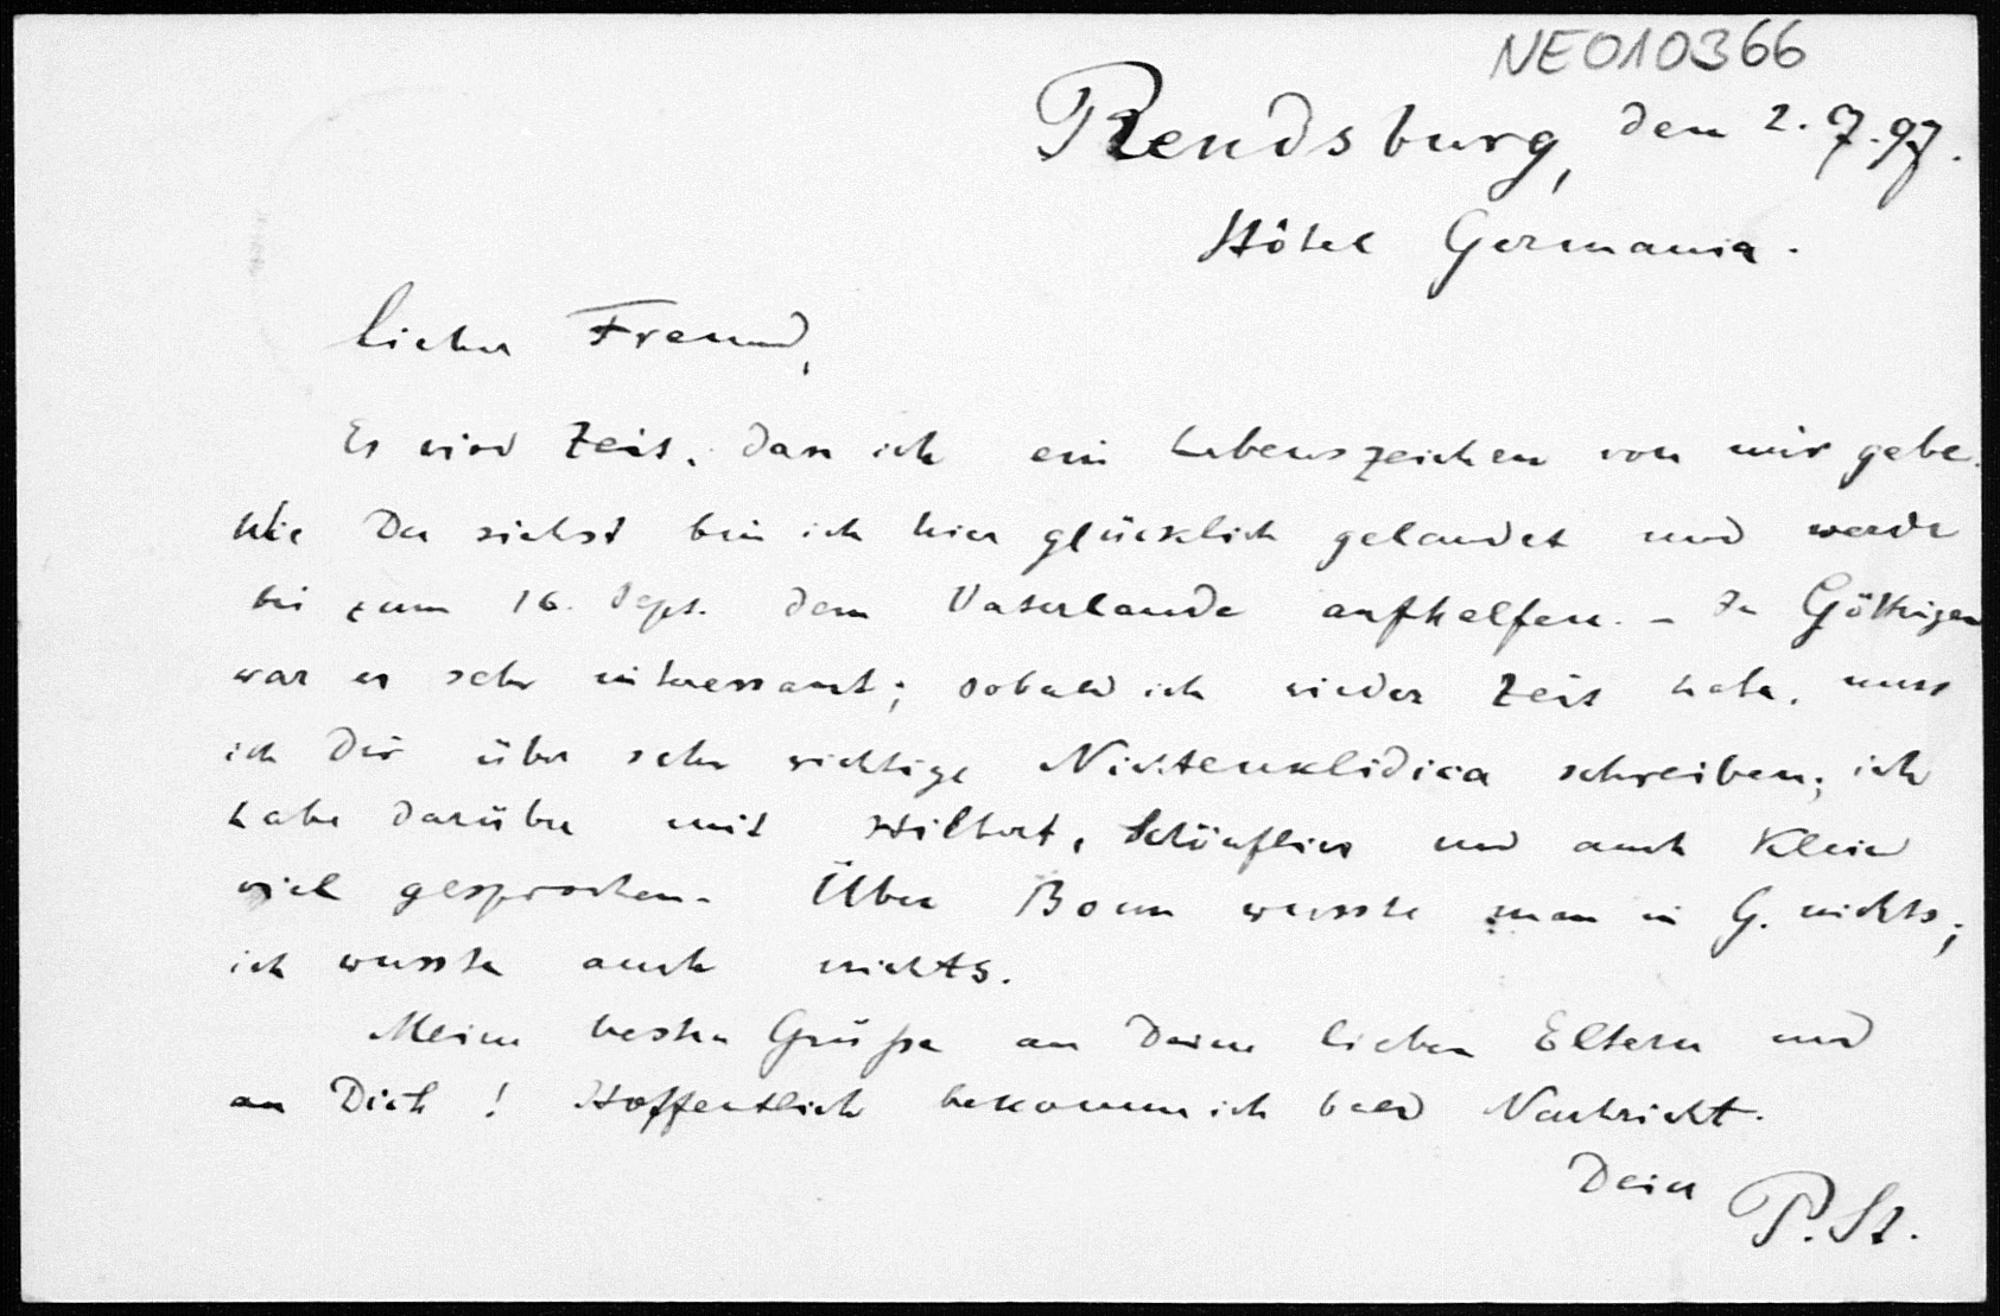 NE010366
Rendsburg, den 2.7.97.
Hôtel Germania.
Lieber Freund,
Es wird Zeit, dass ich ein Lebenszeichen von mir gebe.
Wie Du siehst bin ich hier glücklich gelandet und werde
bis zum 16. Sept. dem Vaterlande aufhelfen. – In Göttingen
war es sehr interessant; sobald ich wieder Zeit habe, muss
ich Dir über sehr wichtige Nichteuklidica schreiben; ich
habe darüber mit Hilbert, Schönflies und auch Klein
viel gesprochen. Über Bonn wusste man in G. nichts;
ich wusste auch nichts.
Meine besten Grüße an Deine lieben Eltern und
an Dich! Hoffentlich bekomme ich bald Nachricht.
Dein P. St.